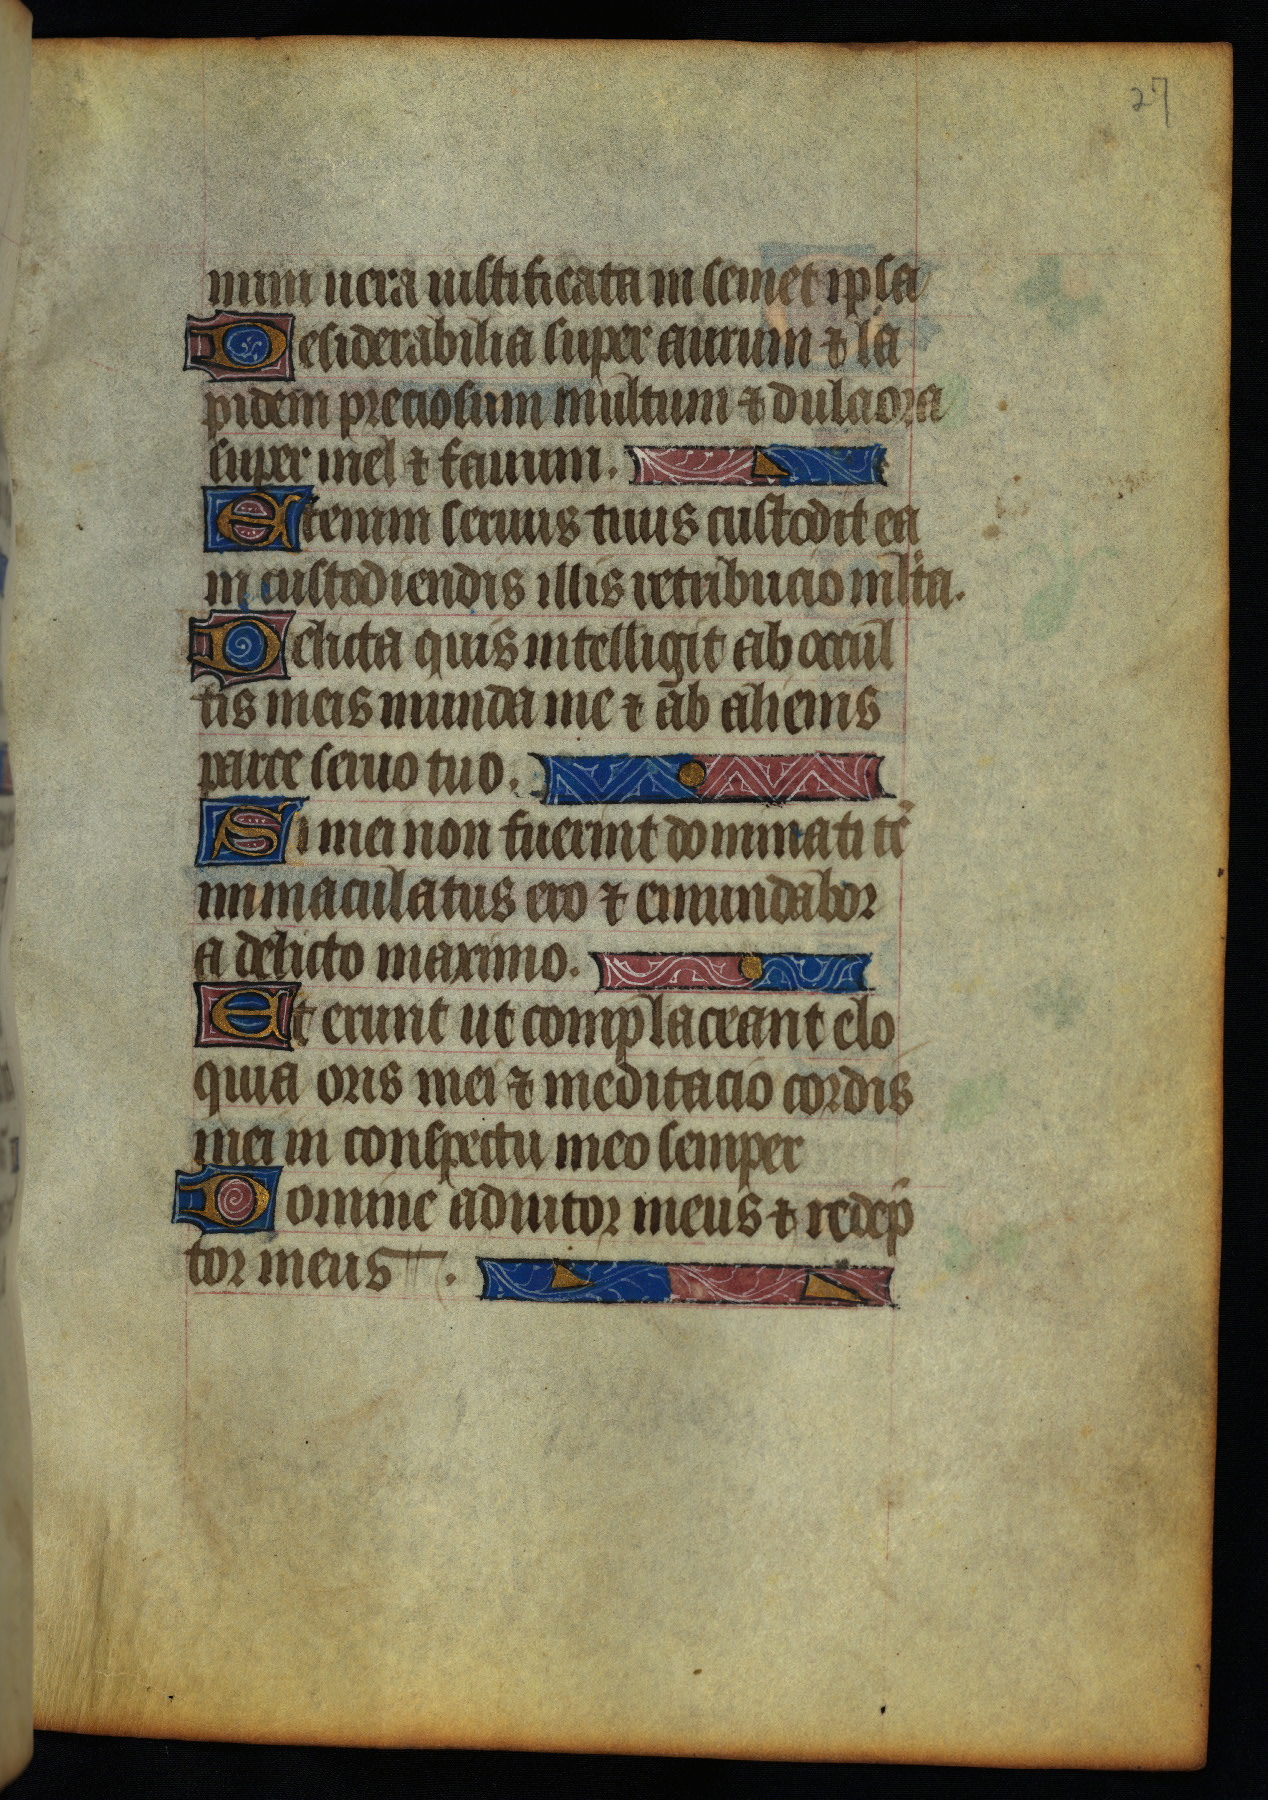 27
mini uera iustificata in semet ipsa
Desiderabilia super aurum ⁊ la
pidem preciosum multum ⁊ dulciora
super mel ⁊ fauum.
Etenim seruus tuus custodit ea
in custodiendis illis retribucio mlta.
Delicta quis intelligit ab occul
tis meis munda me ⁊ ab alienis
parce seruo tuo.
Si mei non fuerint dominati tc̄
inmaculatus ero ⁊ emundabor
a delicto maximo.
Et erunt ut complaceant elo
quia oris mei ⁊ meditacio cordis
mei in conspectu meo semper
Domine adiutor meus ⁊ redep̄
tor meus.